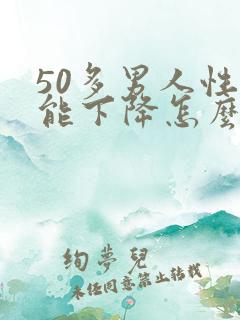 50多男人性
能下降怎麼
绚夢兒
未经同意禁止转载